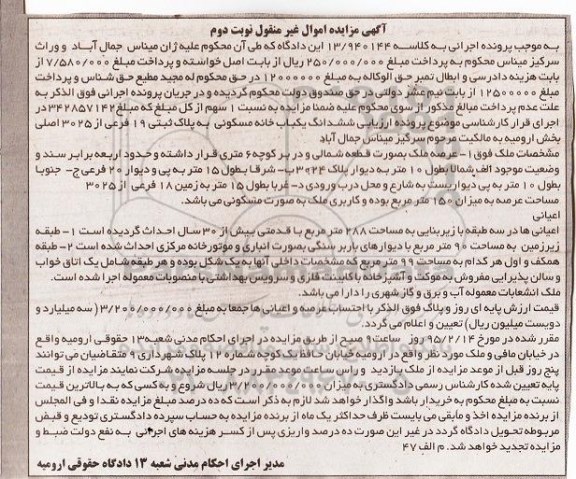 آگهی مزایده اموال غیر منقول نوبت دوم
به موجب پرونده اجرائی به کلاسه ۱۳/۹۴۰۱۴۴ این دادگاه که طی آن محکوم علیه ژان میناس جمال آباد و وراث
سرکیز میناس محکوم به پرداخت مبلغ ۲۵۰/۰۰۰/۰۰۰ ریال از بابت اصل خواسته و پرداخت مبلغ ۷/۵۸۰/۰۰۰ از
بابت هزینه دادرسی و ابطال تمبر حق الوکاله به مبلغ ۱۲۰۰۰۰۰۰ در حق محکوم له مجید مطیع حق شناس و پرداخت
مبلغ ۱۲۵۰۰۰۰۰ از بابت نیم عشر دولتی در حق صندوق دولت محکوم گردیده و در جریان پرونده اجرائی فوق الذکر به
علت عدم پرداخت مبالغ مذکور از سوی محکوم علیه ضمنا مزایده به نسبت ۱ سهم از کل مبلغ که مبلغ ۳۴۲۸۵۷۱۴۲ در
اجرای قرار کارشناسی موضوع پرونده ارزیابی ششدانگ یکباب خانه مسکونی به پلاک ثبتی ۱۹ فرعی از ۳۰۲۵ اصلی
بخش ارومیه به مالکیت مرحوم سرگیز میناس جمال آباد
مشخصات ملک فوق ۱- عرصه ملک بصورت قطعه شمالی و در بر کوچه ۶ متری قرار داشته و حدود اربعه برابر سند و
وضعیت موجود الف شمالا بطول ۱۰ متر به دیوار پلاک ۳۰۲۴ ب- شرقا بطول ۱۵ متر به پی و دیوار ۲۰ فرعی ج- جنوبا
بطول ۱۰ متر به پی دیواریست به شارع و محل درب ورودی د- غربا بطول ۱۵ متر به زمین ۱۸ فرعی از ۳۰۲۵
مساحت عرصه به میزان ۱۵۰ متر مربع بوده و کاربری ملک به صورت مسکونی می باشد.
اعیانی
اعیانی ها در سه طبقه با زیربنایی به مساحت ۲۸۸ متر مربع با قدمتی بیش از ۳۰ سال احداث گردیده است ۱- طبقه
زیرزمین به مساحت ۹۰ متر مربع با دیوارهای باربر سنگی بصورت انباری و موتورخانه مرکزی احداث شده است ۲- طبقه
همکف و اول هر کدام به مساحت ۹۹ متر مربع که مشخصات داخلی آنها به یک شکل بوده و هر طبقه شامل یک اتاق خواب
و سالن پذیرایی مفروش به موکت و آشپزخانه با کابینت فلزی و سرویس بهداشتی با منصوبات معموله اجرا شده است.
ملک انشعابات معموله آب و برق و گاز شهری را دارا می باشد.
قیمت ارزش پایه ای روز و پلاک فوق الذکر با احتساب عرصه و اعیانی ها جمعا به مبلغ ۳/۲۰۰/۰۰۰/۰۰۰ (سه میلیارد و
دویست میلیون ریال) تعیین و اعلام می گردد.
مقرر شده در مورخ ۹۵/۲/۱۴ روز ساعت ۹ صبح از طریق مزایده در اجرای احکام مدنی شعبه ۱۳ حقوقی ارومیه واقع
در خیابان مافی و ملک مورد نظر واقع در ارومیه خیابان حافظ یک کوچه شماره ۱۲ پلاک شهرداری ۹ متقاضیان می توانند
پنج روز قبل از موعد مزایده از ملک بازدید و راس ساعت موعد مقرر در جلسه مزایده شرکت نمایند مزایده از قیمت
پایه تعیین شده کارشناس رسمی دادگستری به مبلغ ۳/۲۰۰/۰۰۰/۰۰۰ ریال شروع و به کسی که به بالاترین قیمت
نسبت به مبلغ محکوم به خریدار باشد واگذار خواهد شد لازم به ذکر است که ده درصد مبلغ مزایده نقدا و فی المجلس
از برنده مزایده اخذ و مابقی می بایست ظرف حداکثر یک ماه از برنده مزایده به حساب سپرده دادگستری تودیع و قبض
مربوطه تحویل دادگاه گردد در غیر این صورت ده درصد واریزی پس از کسر هزینه های اجرائی به نفع دولت ضبط و
مزایده تجدید خواهد شد. م الف ۴۷
مدیر اجرای احکام مدنی شعبه ۱۳ دادگاه حقوقی ارومیه